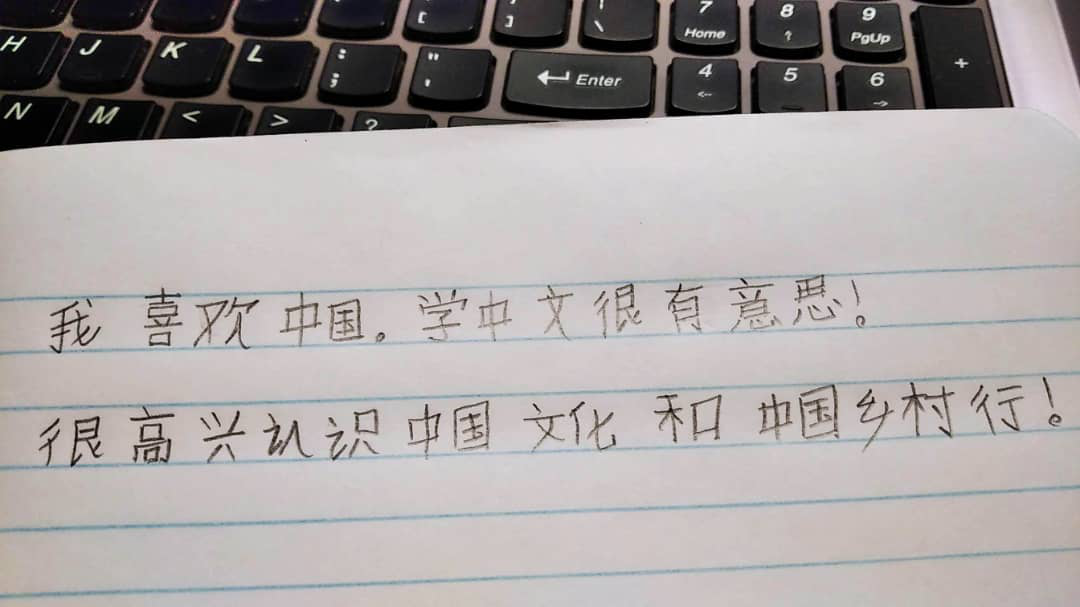 { [ } ] | \ 7 Home 8 ↑ 9 PgUp
H J K L : ; " ' Enter 4 ← 5 6 → +
N M < > ?
我喜欢中国。学中文很有意思！
很高兴认识中国文化和中国乡村行！